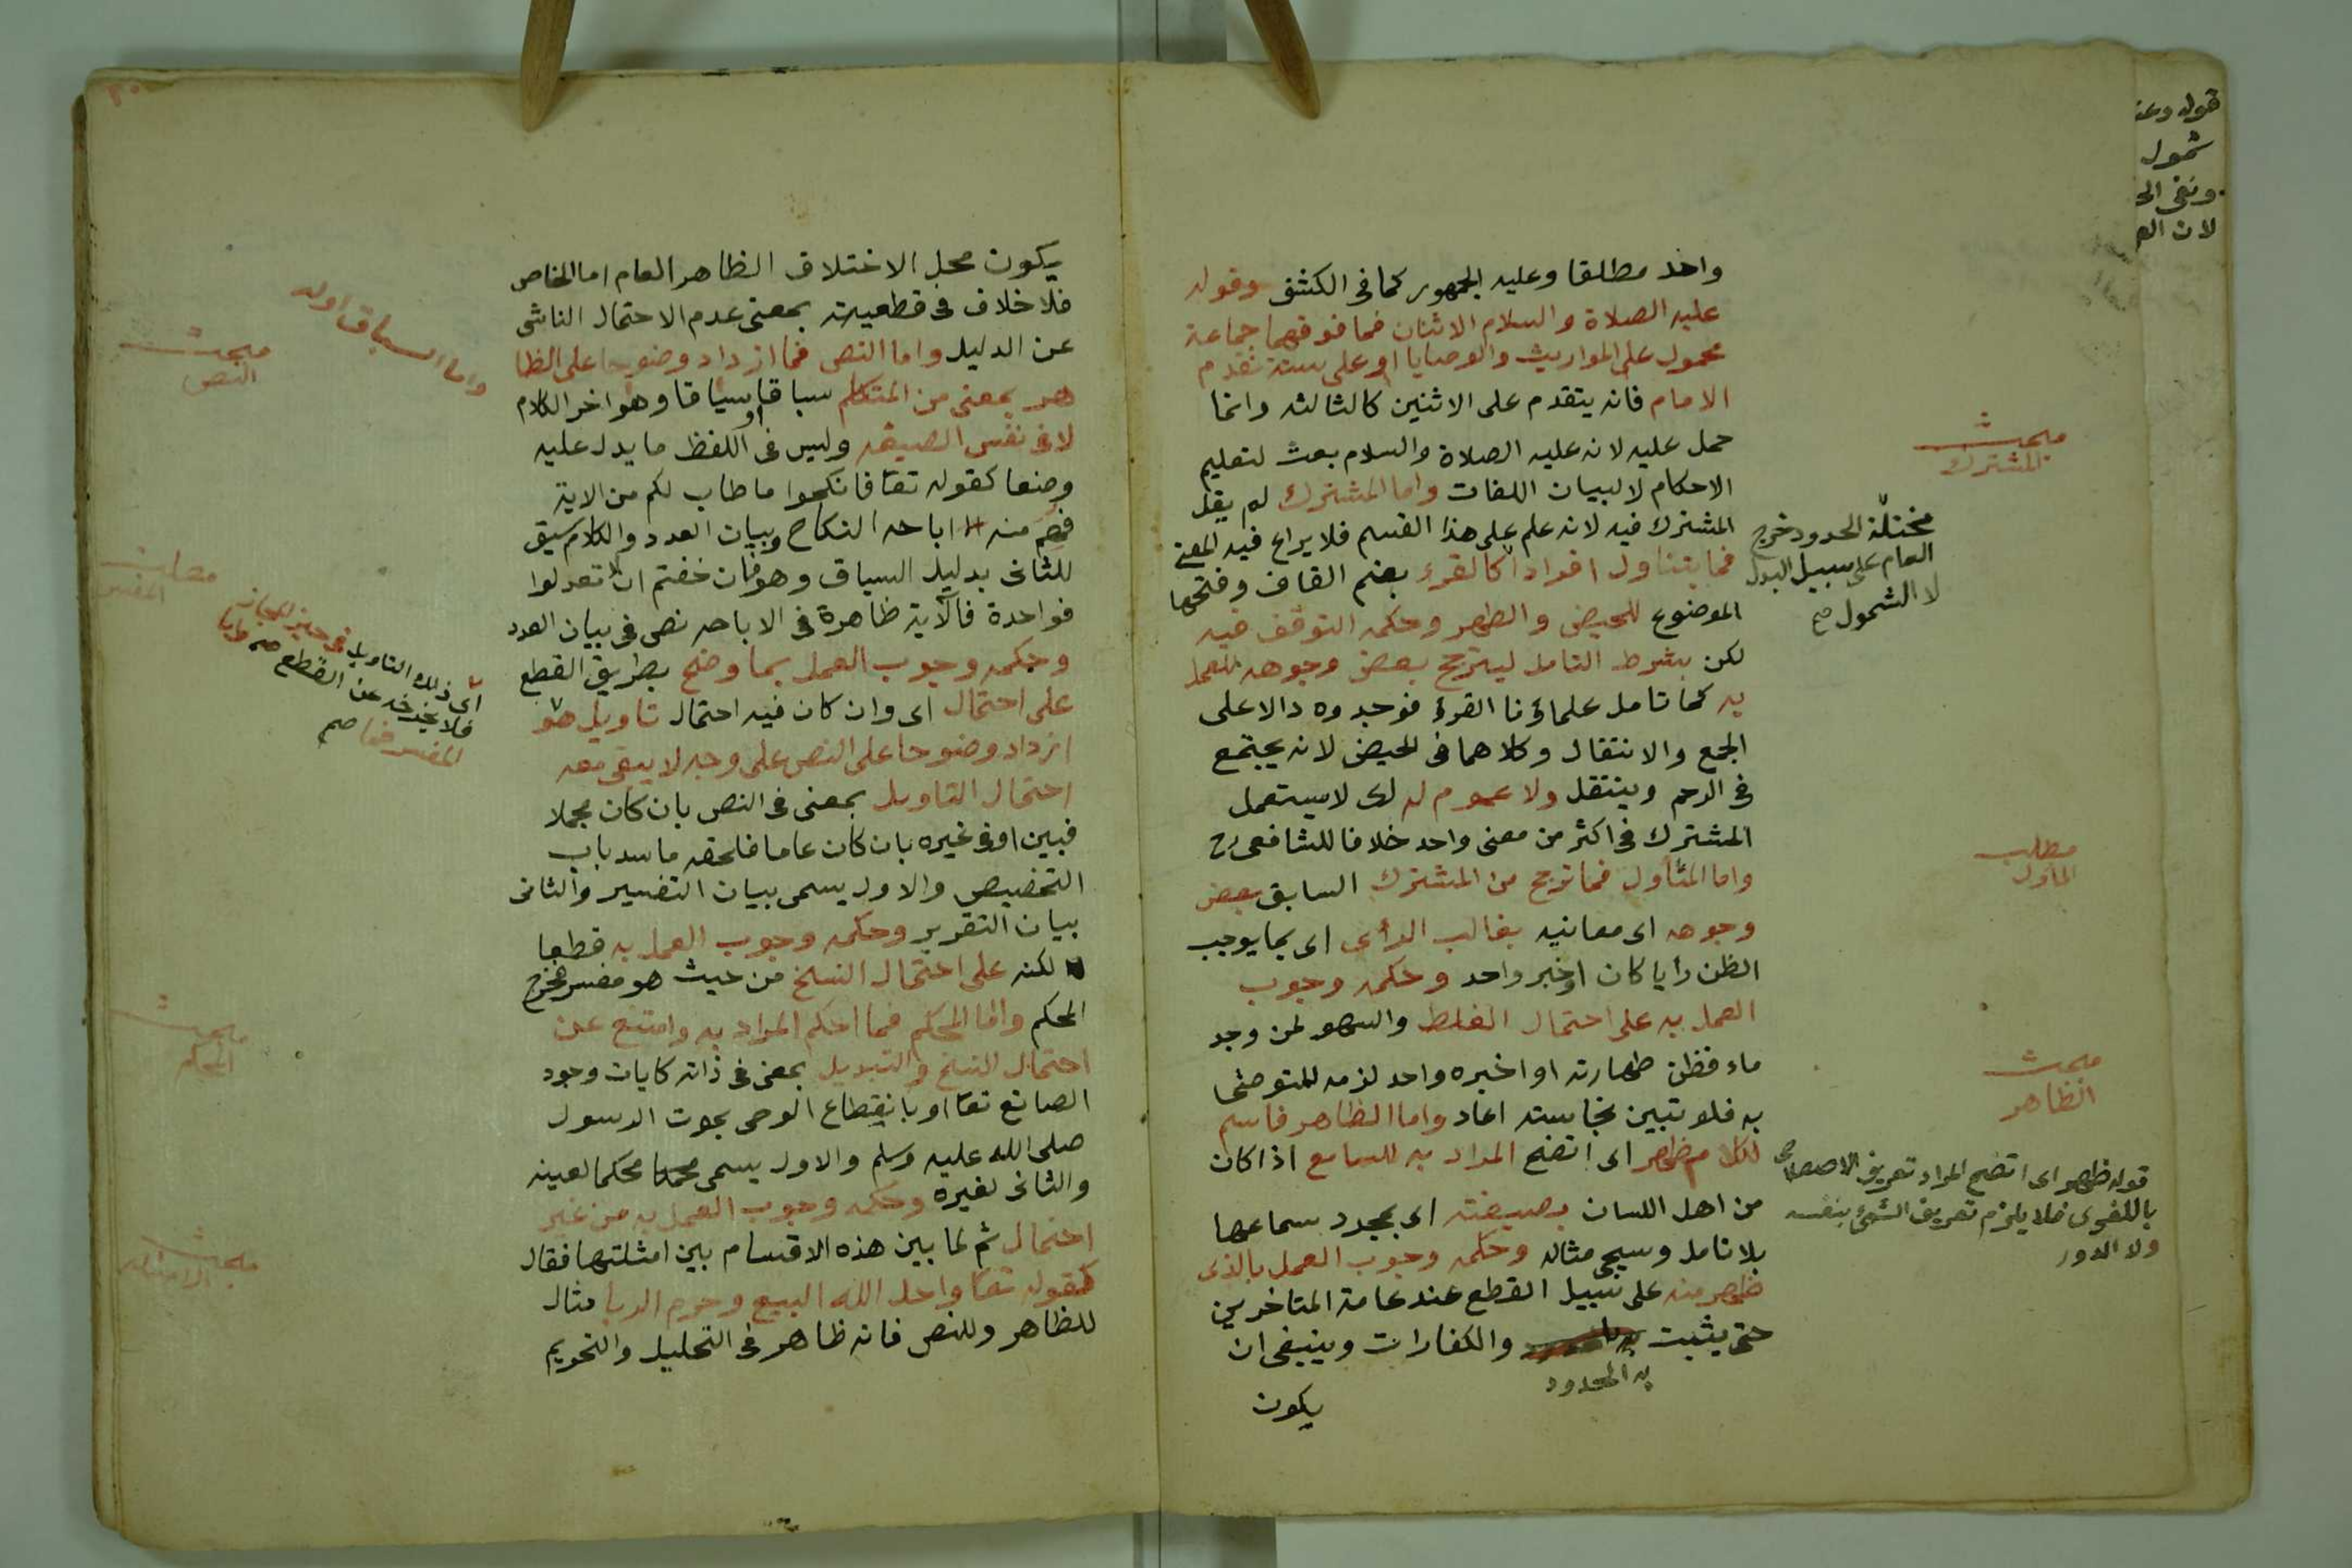 واحد مطلقا وعليه الجمهور كما فى الكشف وقوله
عليه الصلاة والسلام الاثنان فما فوقهما جماعة
محمول على المواريث والوصايا او على سنة تقدم
الامام فانه يتقدم على الاثنين كالثالثه وانما
حمل عليه لانه عليه الصلاة والسلام بعث لتعليم
الاحكام لا لبيان اللغات واما المشترك لم يقل
المشترك فيه لانه علم على هذا القسم فلا يراع فيه المعنى
فما يتناول افرادا كالقرء بضم القاف وفتحها
الموضوع للحيض والطهر وحكمه التوقف فيه
لكن بشرط التامل ليترجح بعض وجوهه للعمل
به كما تامل علماؤنا القرء فوجدوه دالا على
الجمع والانتقال وكلاهما فى الحيض لانه يجتمع
فى الرحم وينتقل ولا عموم له اى لا يستعمل
المشترك فى اكثر من معنى واحد خلافا للشافعى رح
واما المئاول فما ترجح من المشترك السابق بعض
وجوهه اى معانيه بغالب الرأى اى بما يوجب
الظن رأيا كان او خبر واحد وحكمه وجوب
العمل به على احتمال الغلط والسهو لمن وجد
ماء فظن طهارته او اخبره واحد لزمه المتوضى
به فلو تبين نجاسته اعاد واما الظاهر فاسم
لكلام ظهر اى اتضح المراد به للسامع اذا كان
من اهل اللسان بصيغته اى بمجرد سماعها
بلا تامل وسيجى مثاله وحكمه وجوب العمل بالذى
ظهر منه على سبيل القطع عند عامة المتاخرين
حتى يثبت والكفارات وينبغى ان
به الحدود
يكون
مبحث
المشترك
مختلفة الحدود خرج
العام على سبيل البدل
لا الشمول صح
مطلب
الماول
مبحث
الظاهر
قوله ظهر اى اتضح المراد تعريف الاصطلاحى
باللغوى فلا يلزم تعريف الشئ بنفسه
ولا الدور
قوله وعند
شمول
ونفى
لان
يكون محل الاختلاف الظاهر العام اما الخاص
فلا خلاف فى قطعيته بمعنى عدم الاحتمال الناشى
عن الدليل واما النص فما ازداد وضوحا على الظا
هر بمعنى من المتكلم سباقا او سياقا وهو اخر الكلام
لا فى نفس الصيغه وليس فى اللفظ ما يدل عليه
وضعا كقوله تعا فانكحوا ما طاب لكم من الاية
فهم منه اباحه النكاح وبيان العدد والكلام سيق
للثانى بدليل السياق وهو فان خفتم ان لا تعدلوا
فواحدة فالآية ظاهرة فى الاباحه نص فى بيان العدد
وحكمه وجوب العمل بما وضح بطريق القطع
على احتمال اى وان كان فيه احتمال تاويل هو
ازداد وضوحا على النص على وجه لا يبقى معه
احتمال التاويل بمعنى فى النص بان كان مجملا
فبين او فى غيره بان كان عاما فلحقه ما سد باب
التخصيص والاول يسمى ببيان التفسير والثانى
بيان التقرير وحكمه وجوب العمل به قطعا
لكنه على احتمال النسخ من حيث هو مفسر فخرج
المحكم واما المحكم فما احكم المراد به وامتنع عن
احتمال النسخ والتبديل بمعنى فى ذاته كايات وجود
الصانع تعا او بانقطاع الوحى بموت الرسول
صلى الله عليه وسلم والاول يسمى محكما لعينه
والثانى لغيره وحكمه وجوب العمل به من غير
احتمال ثم لما بين هذه الاقسام بين امثلتها فقال
كقوله تعا واحل الله البيع وحرم الربا مثال
للظاهر وللنص فانه ظاهر فى التحليل والتحريم
واما السباق اوله
مبحث
النص
مطلب
المفسر
اى ذلك التاويل فى حيز المجاز
فلا يخرجه عن القطع صح واما
المفسر فما صح
مبحث
المحكم
مبحث
الامثله